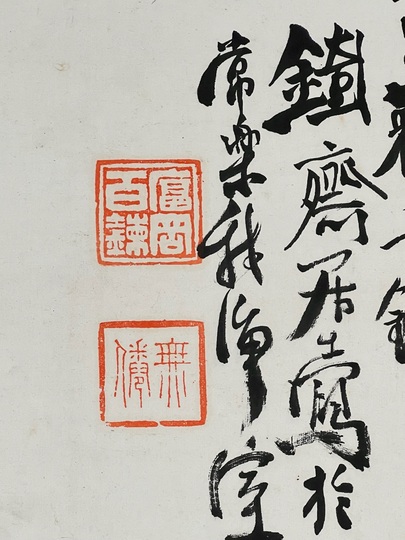 鐵齋居士寫於
常樂我淨室
富岡百鍊
無倦